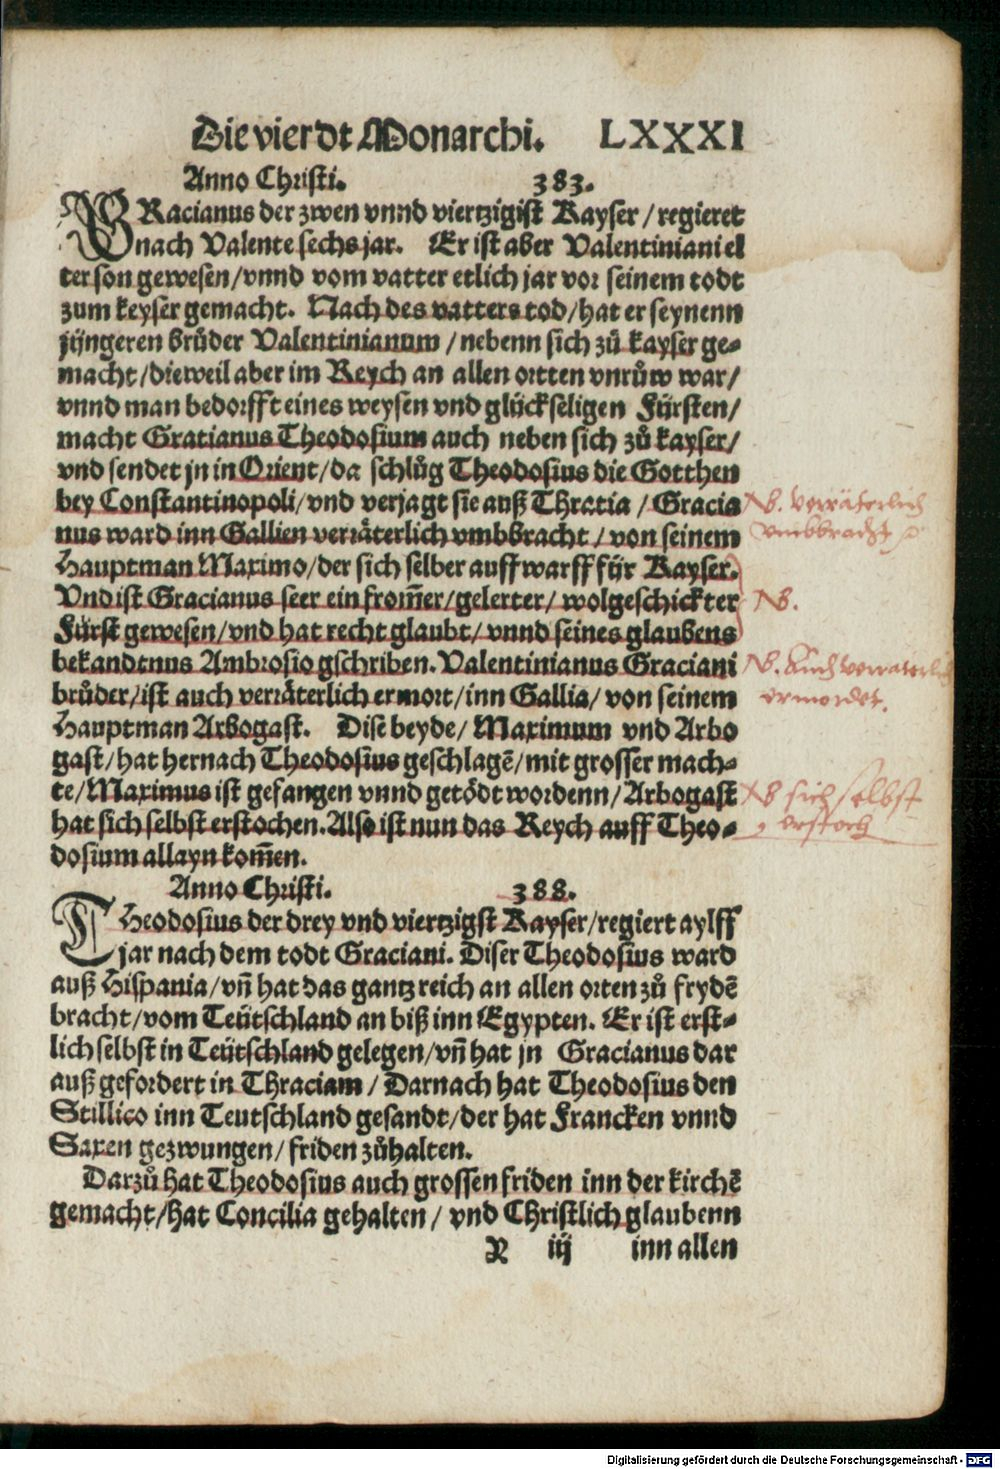 Die vierdt Monarchi. LXXXI
Anno Christi. 383.
GRacianus der zwen vnnd viertzigist Kayser / regieret
nach Valente sechs jar. Er ist aber Valentiniani el
ter son gewesen / vnnd vom vatter etlich jar vor seinem todt
zum keyser gemacht. Nach des vatters tod / hat er seynenn
jüngeren brůder Valentinianum / nebenn sich zů kayser ge-
macht / dieweil aber im Reych an allen ortten vnrůw war /
vnnd man bedorfft eines weysen vnd glückseligen Fürsten /
macht Gratianus Theodosium auch neben sich zů kayser /
vnd sendet jn in Orient / da schlůg Theodosius die Gotthen
bey Constantinopoli / vnd verjagt sie auß Thratia / Gracia
nus ward inn Gallien verräterlich vmbbracht / von seinem
Hauptman Maximo / der sich selber auff warff für Kayser.
Vnd ist Gracianus seer ein from̄er / gelerter / wolgeschickter
Fürst gewesen / vnd hat recht glaubt / vnnd seines glaubens
bekandtnus Ambrosio gschriben. Valentinianus Graciani
brůder / ist auch verräterlich ermort / inn Gallia / von seinem
Hauptman Arbogast. Dise beyde / Maximum vnd Arbo
gast / hat hernach Theodosius geschlagē / mit grosser mach-
te / Maximus ist gefangen vnnd getödt wordenn / Arbogast
hat sich selbst erstochen. Also ist nun das Reych auff Theo-
dosium allayn kom̄en.
Anno Christi. 388.
THeodosius der drey vnd viertzigst Kayser / regiert aylff
jar nach dem todt Graciani. Diser Theodosius ward
auß Hispania / vn̄ hat das gantz reich an allen orten zů frydē
bracht / vom Teütschland an biß inn Egypten. Er ist erst-
lich selbst in Teütschland gelegen / vn̄ hat jn Gracianus dar
auß gefordert in Thraciam / Darnach hat Theodosius den
Stillico inn Teutschland gesandt / der hat Francken vnnd
Saxen gezwungen / friden zůhalten.
Darzů hat Theodosius auch grossen friden inn der kirchē
gemacht / hat Concilia gehalten / vnd Christlich glaubenn
X iij inn allen
NB. verräterlich
vmbbracht
NB.
NB. Auch verräterlich
ermordet.
NB sich selbst
erstoch
Digitalisierung gefördert durch die Deutsche Forschungsgemeinschaft - DFG